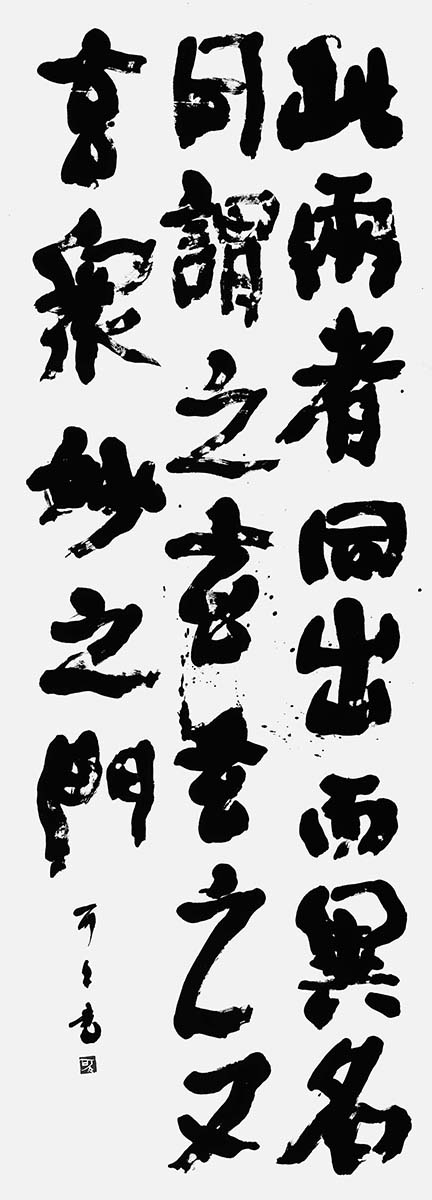 此兩者同出而異名
同謂之玄玄之又
玄衆妙之門